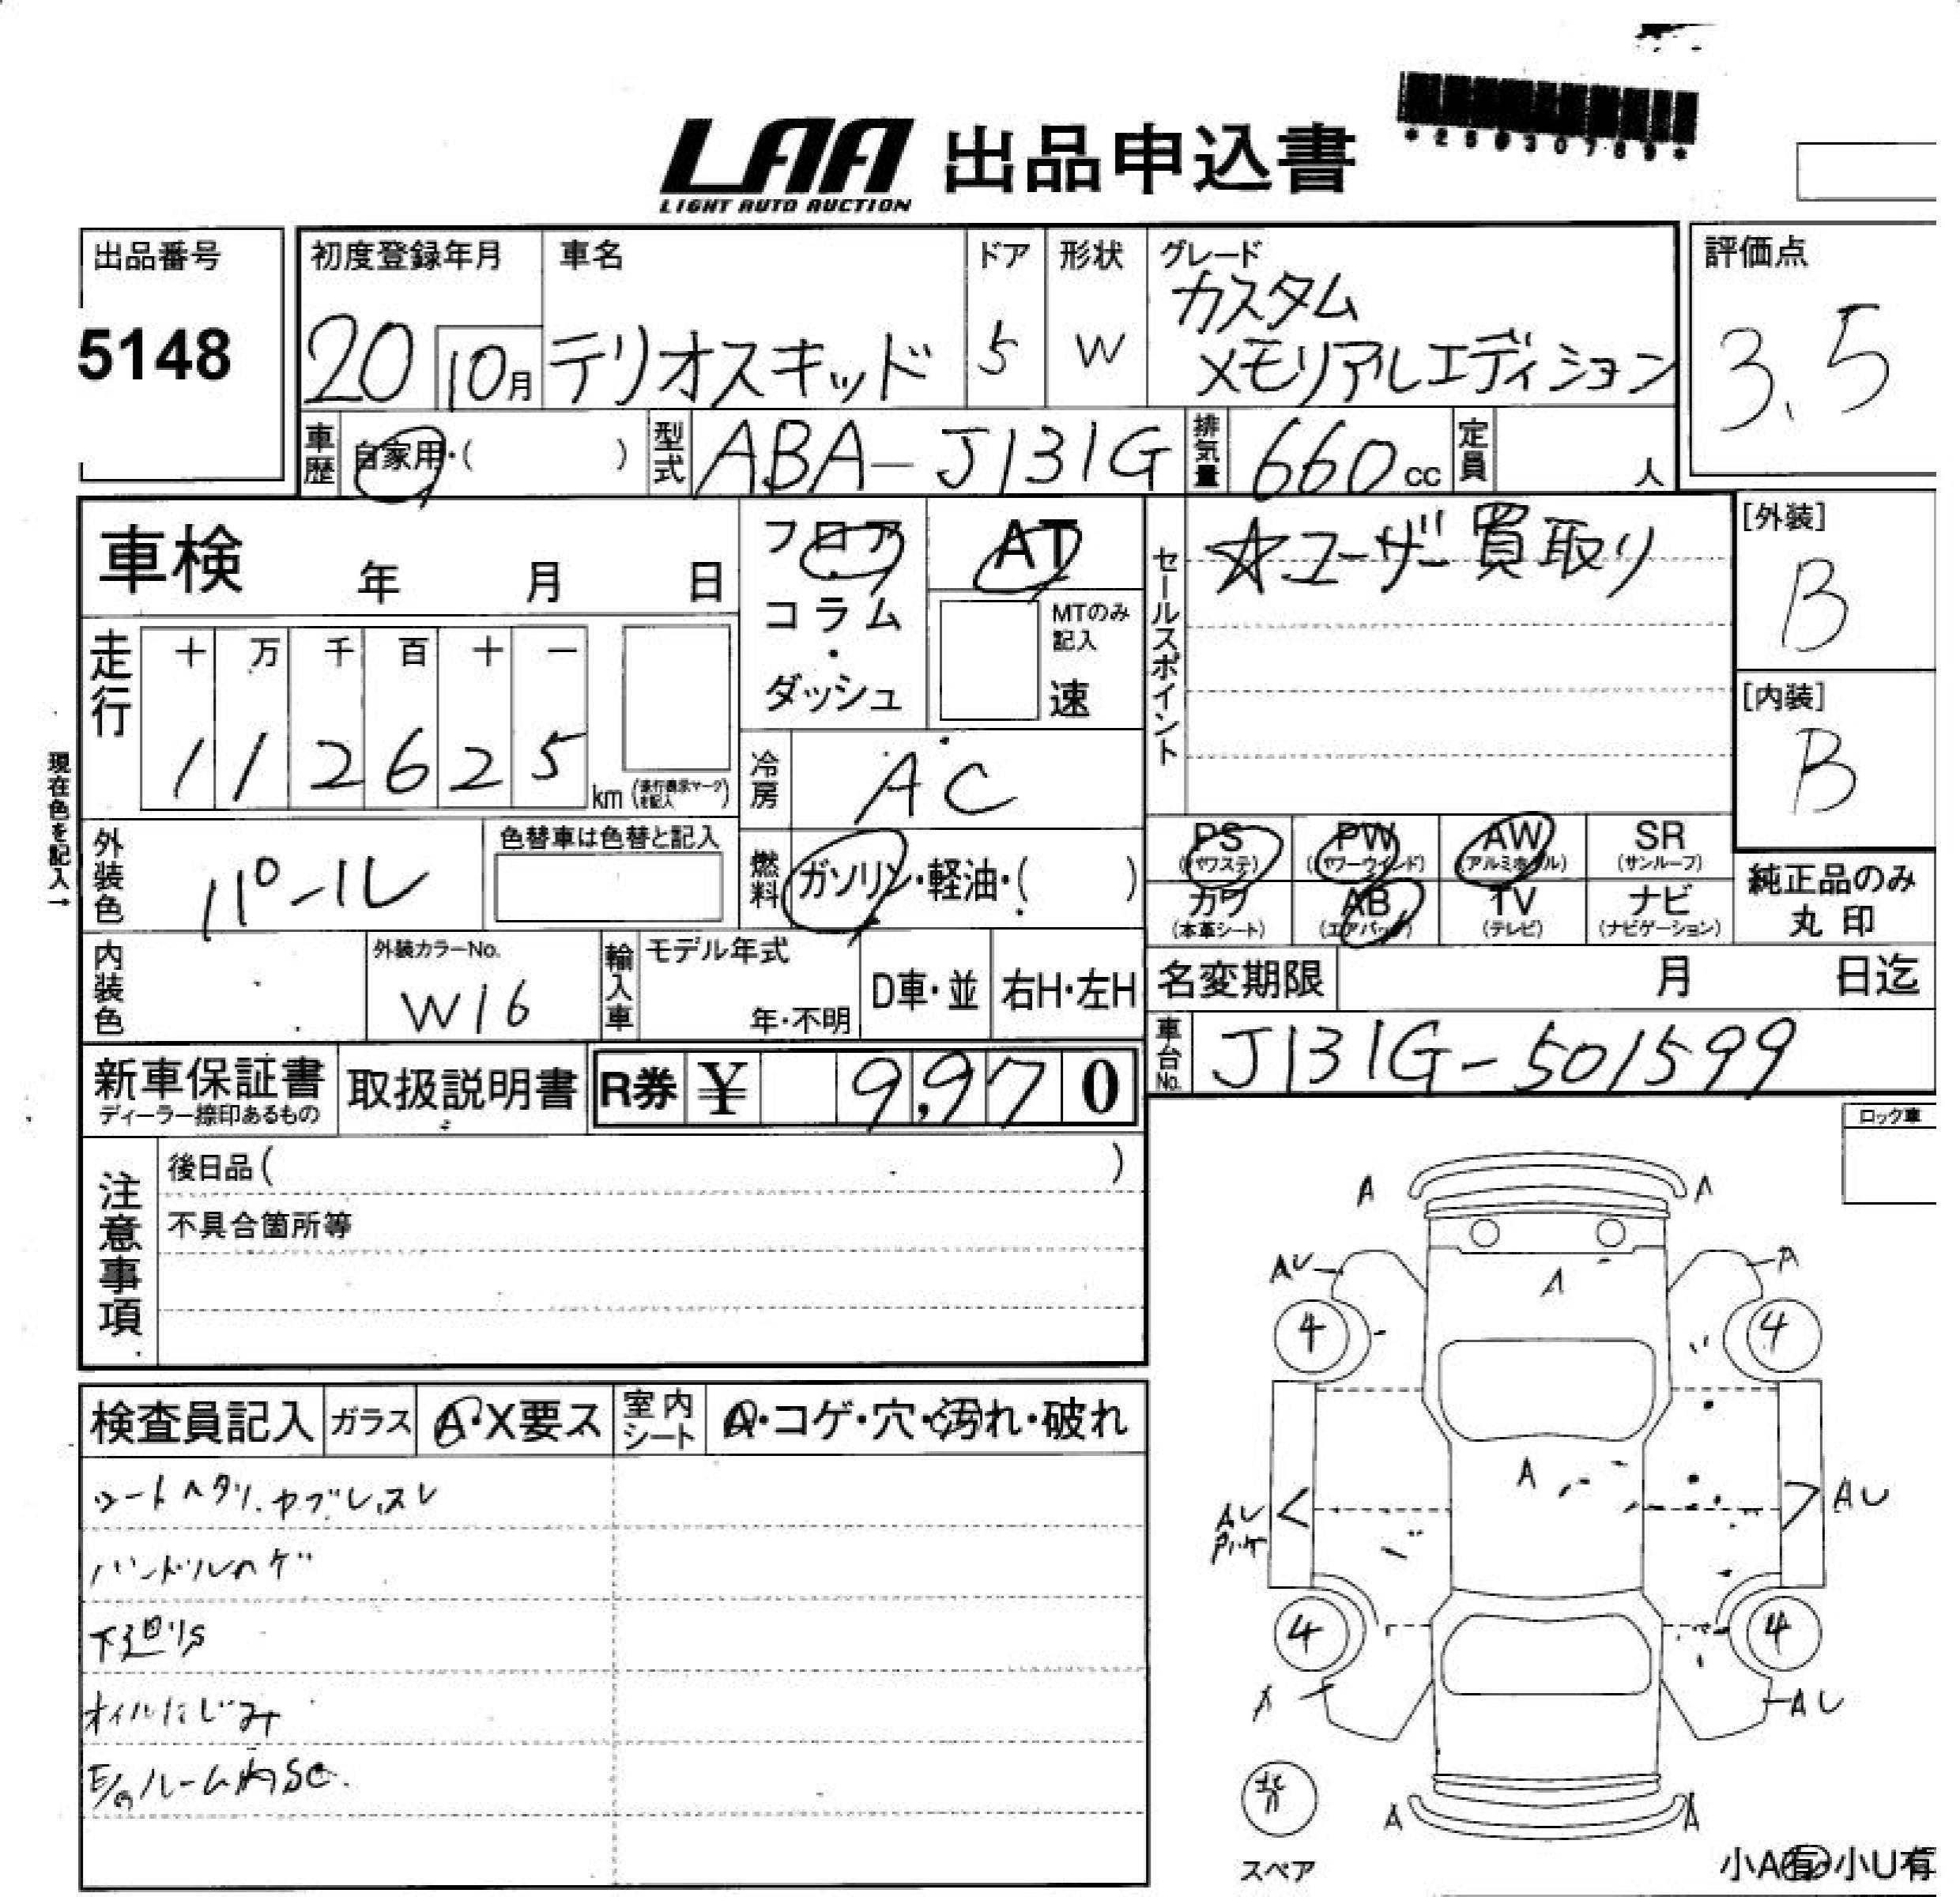 LAA 出品申込書
LIGHT AUTO AUCTION
出品番号
5148
初度登録年月
20 10月
車名
テリオスキッド
ドア
5
形状
W
グレード
カスタム
メモリアルエディション
評価点
3.5
車歴 自家用・( )
型式 ABA-J131G
排気量 660 cc
定員 人
車検 年 月 日
フロア
・
コラム
・
ダッシュ
AT
MTのみ
記入
速
セールスポイント
☆ユーザー買取り
[外装]
B
[内装]
B
走行
十 万 千 百 十 一
1 1 2 6 2 5 km
現在色を記入→
冷房 AC
外装色 パール
色替車は色替と記入
燃料 ガソリン・軽油・( )
PS (パワステ)
PW (パワーウインド)
AW (アルミホイル)
SR (サンルーフ)
カワ (本革シート)
AB (エアバッグ)
TV (テレビ)
ナビ (ナビゲーション)
純正品のみ
丸印
内装色
外装カラーNo.
W16
輸入車
モデル年式
年・不明
D車・並
右H・左H
名変期限 月 日迄
車台No. J131G-501599
新車保証書
ディーラー捺印あるもの
取扱説明書
R券 ¥ 9,970
注意事項
後日品( )
不具合箇所等
ロック車
検査員記入
ガラス A・X要ス
室内シート A・コゲ・穴・汚れ・破れ
シートヘタリ、ヤブレ、スレ
ハンドルハゲ
下廻りS
オイルにじみ
E/gルーム内S
A A
AU A
A
4 4
A
AU AU
4 4
A AU
A A
スペア
小A有 小U有